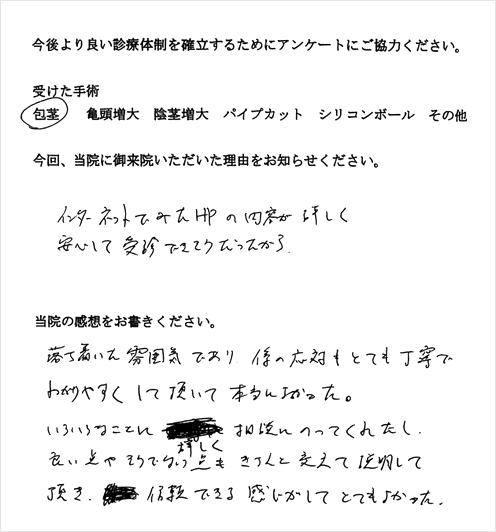 今後より良い診療体制を確立するためにアンケートにご協力ください。
受けた手術
包茎 亀頭増大 陰茎増大 パイプカット シリコンボール その他
今回、当院に御来院いただいた理由をお知らせください。
インターネットでみたHPの内容が詳しく
安心して受診できそうだったから.
当院の感想をお書きください。
落ち着いた雰囲気であり 係の応対もとても丁寧で
わかりやすくして頂いて本当によかった。
いろいろなことに 詳しく 相談にのってくれたし.
良い点やそうでない点も きちんと交えて説明して
頂き. 信頼できる感じがしてとてもよかった.